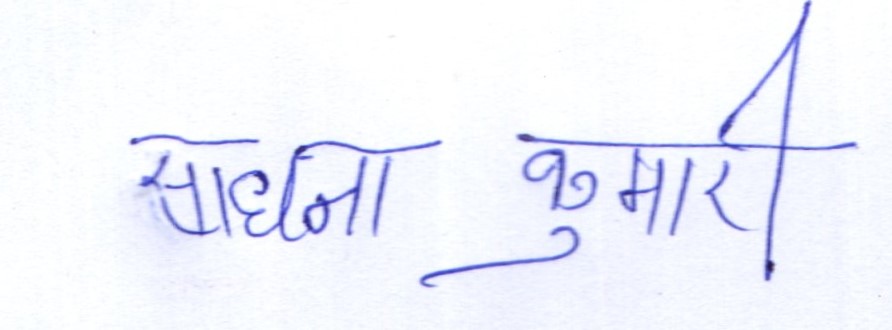 साधना कुमारी